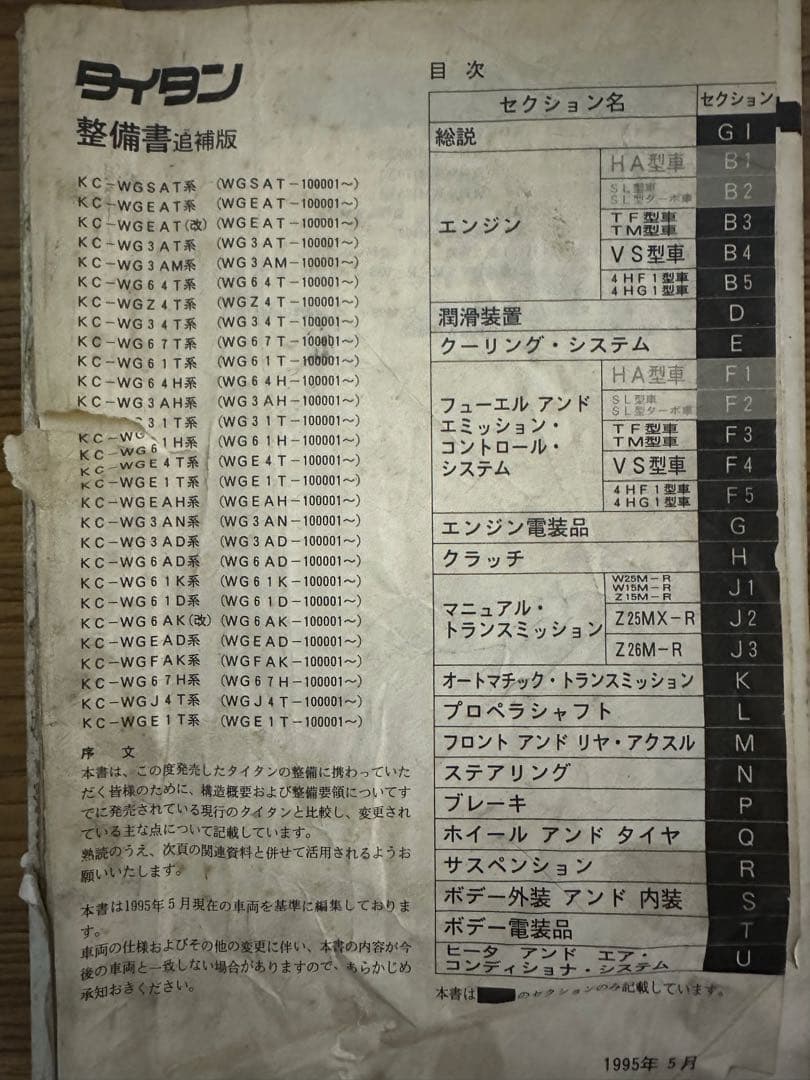 タイタン
整備書追補版
KC-WGSAT系 (WGSAT-100001～)
KC-WGEAT系 (WGEAT-100001～)
KC-WGEAT(改) (WGEAT-100001～)
KC-WG3AT系 (WG3AT-100001～)
KC-WG3AM系 (WG3AM-100001～)
KC-WG64T系 (WG64T-100001～)
KC-WGZ4T系 (WGZ4T-100001～)
KC-WG34T系 (WG34T-100001～)
KC-WG67T系 (WG67T-100001～)
KC-WG61T系 (WG61T-100001～)
KC-WG64H系 (WG64H-100001～)
KC-WG3AH系 (WG3AH-100001～)
31T系 (WG31T-100001～)
KC-WG61H系 (WG61H-100001～)
KC-WGE4T系 (WGE4T-100001～)
KC-WGE1T系 (WGE1T-100001～)
KC-WGEAH系 (WGEAH-100001～)
KC-WG3AN系 (WG3AN-100001～)
KC-WG3AD系 (WG3AD-100001～)
KC-WG6AD系 (WG6AD-100001～)
KC-WG61K系 (WG61K-100001～)
KC-WG61D系 (WG61D-100001～)
KC-WG6AK(改) (WG6AK-100001～)
KC-WGEAD系 (WGEAD-100001～)
KC-WGFAK系 (WGFAK-100001～)
KC-WG67H系 (WG67H-100001～)
KC-WGJ4T系 (WGJ4T-100001～)
KC-WGE1T系 (WGE1T-100001～)
序 文
本書は、この度発売したタイタンの整備に携わっていた
だく皆様のために、構造概要および整備要領についてす
でに発売されている現行のタイタンと比較し、変更され
ている主な点について記載しています。
熟読のうえ、次頁の関連資料と併せて活用されるようお
願いいたします。
本書は1995年5月現在の車両を基準に編集しておりま
す。
車両の仕様およびその他の変更に伴い、本書の内容が今
後の車両と一致しない場合がありますので、あらかじめ
承知おきください。
目 次
セクション名 セクション
総説 GI
エンジン
HA型車 B1
SL型車
SL型ターボ車 B2
TF型車
TM型車 B3
VS型車 B4
4HF1型車
4HG1型車 B5
潤滑装置 D
クーリング・システム E
フューエル アンド
エミッション・
コントロール・
システム
HA型車 F1
SL型車
SL型ターボ車 F2
TF型車
TM型車 F3
VS型車 F4
4HF1型車
4HG1型車 F5
エンジン電装品 G
クラッチ H
マニュアル・
トランスミッション
W25M-R
W15M-R
Z15M-R J1
Z25MX-R J2
Z26M-R J3
オートマチック・トランスミッション K
プロペラシャフト L
フロント アンド リヤ・アクスル M
ステアリング N
ブレーキ P
ホイール アンド タイヤ Q
サスペンション R
ボデー外装 アンド 内装 S
ボデー電装品 T
ヒータ アンド エア・
コンディショナ・システム U
本書は のセクションのみ記載しています。
1995年 5月